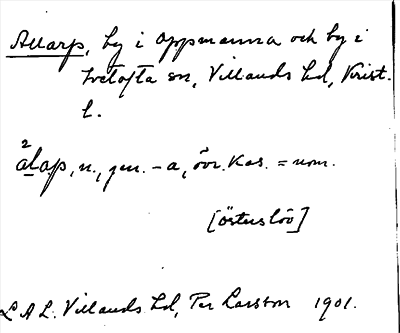 Allarp, by i Oppmanna och by i
Ivetofta sn, Villands hd, Krist.
l.
²ālap, n., gen. -a, övr. kas. = nom.
[Österslöv]
L A L. Villands hd, Per Larson 1901.